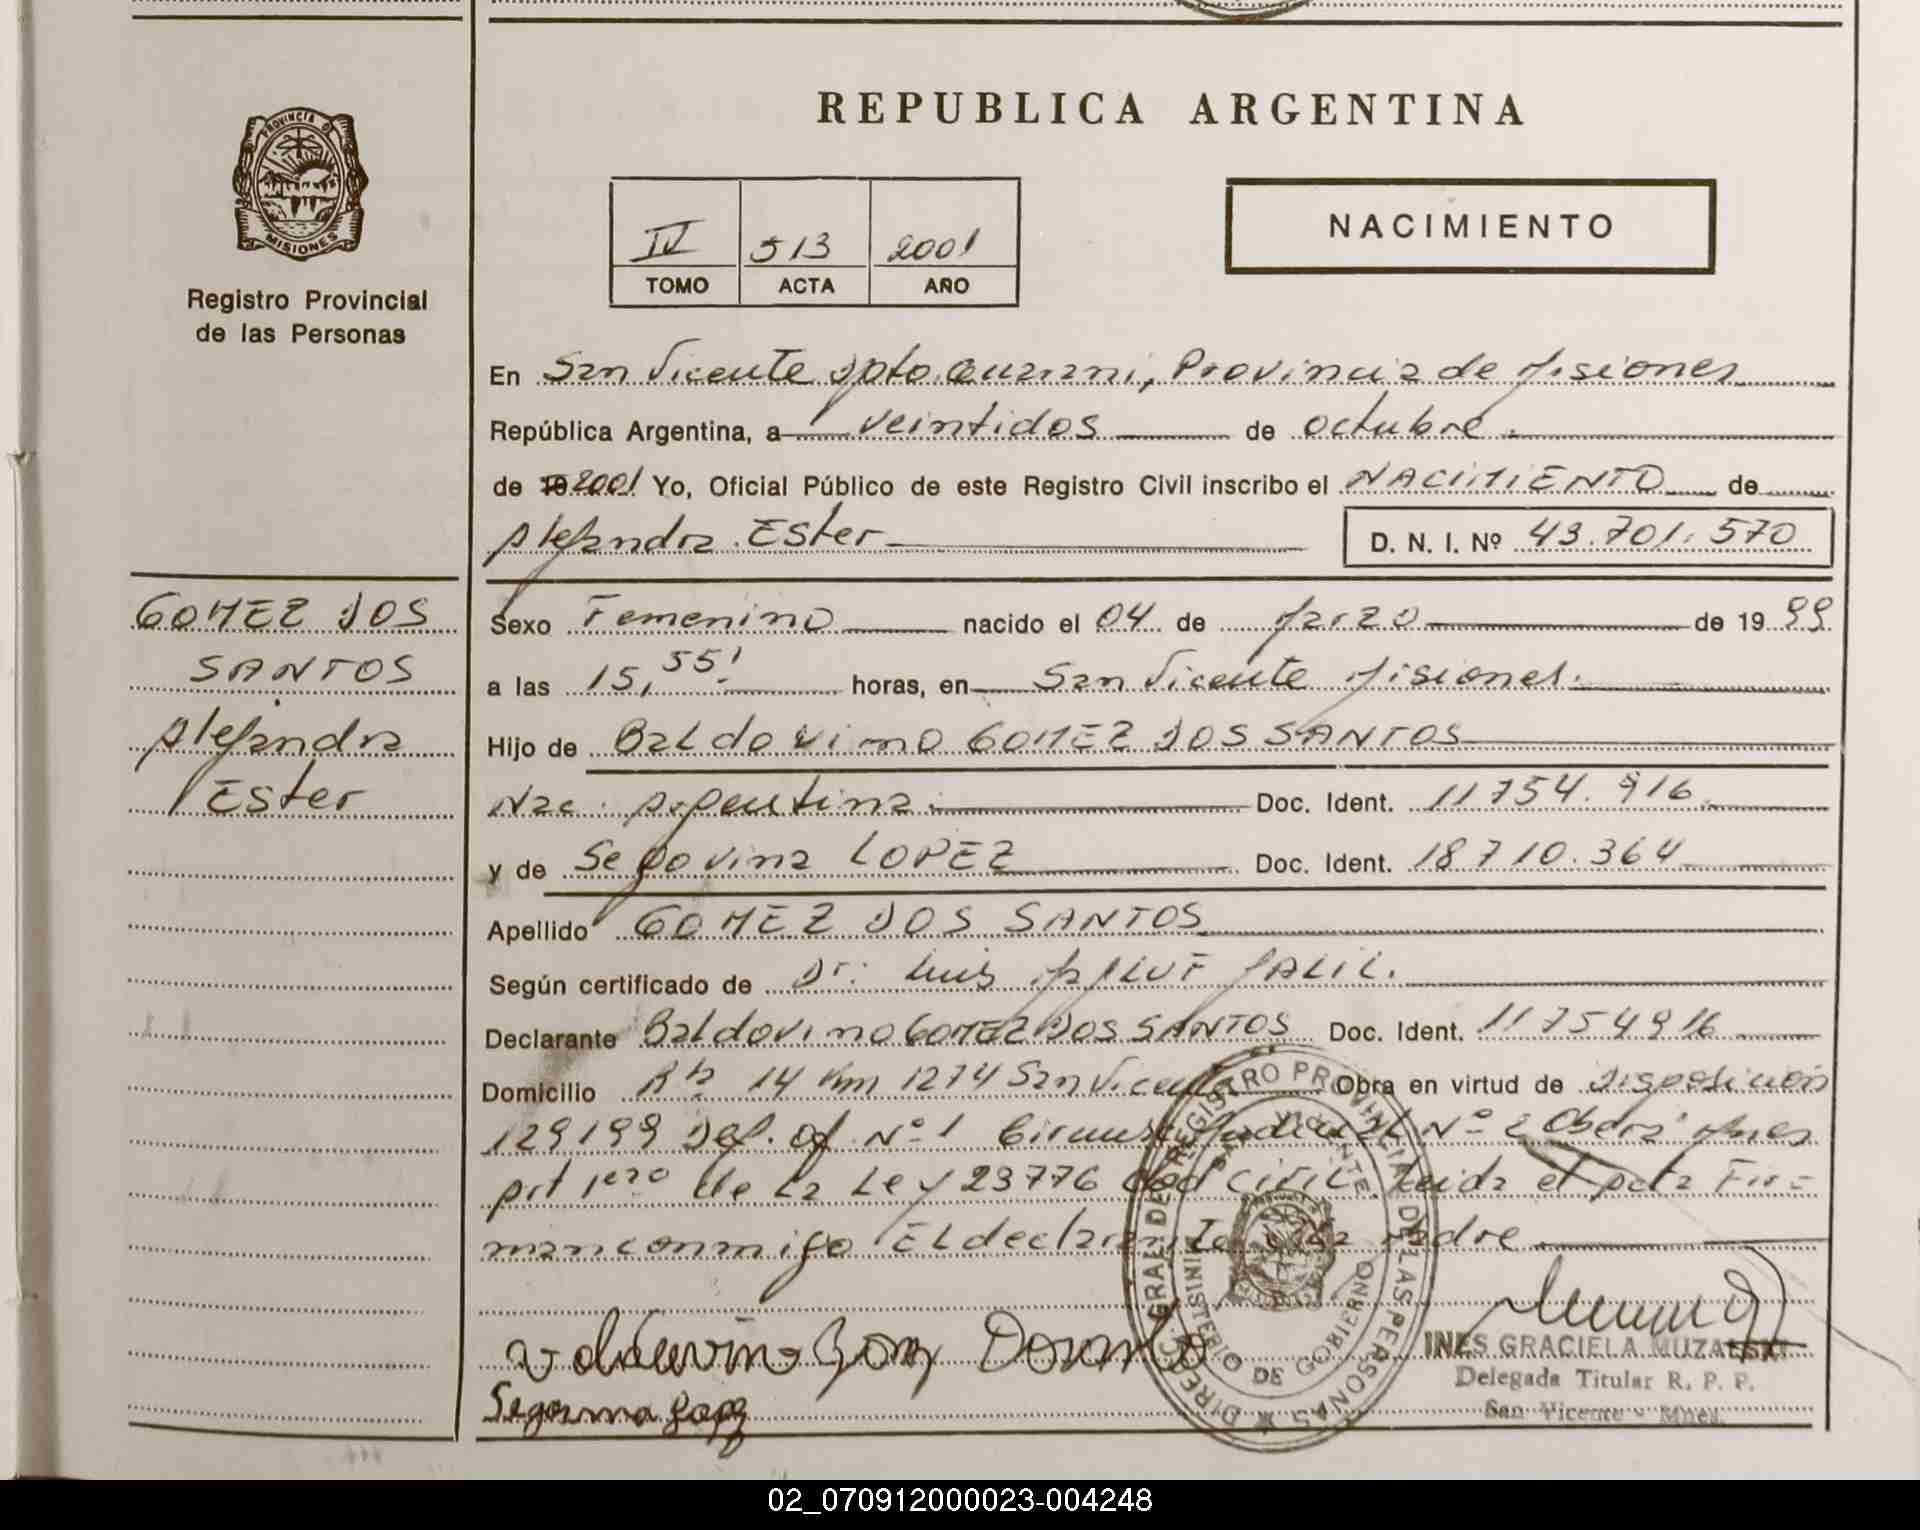 REPUBLICA ARGENTINA
PROVINCIA D
MISIONES
Registro Provincial
de las Personas
IV 513 2001
TOMO ACTA AÑO
NACIMIENTO
En San Vicente Dpto. Guarani, Provincia de Misiones
República Argentina, a veintidos de octubre.
de 19 2001 Yo, Oficial Público de este Registro Civil inscribo el NACIMIENTO de
Alejandra Ester D. N. I. Nº 43.701.570
GOMEZ DOS
SANTOS
Alejandra
Ester
Sexo Femenino nacido el 04 de Marzo de 19 99
a las 15,55' horas, en San Vicente Misiones.
Hijo de Baldovino GOMEZ DOS SANTOS
Nac. Argentina. Doc. Ident. 11754.916.
y de Segovina LOPEZ Doc. Ident. 18710.364
Apellido GOMEZ DOS SANTOS
Según certificado de Dr. Luis JALIL.
Declarante Baldovino GOMEZ DOS SANTOS Doc. Ident. 11754916
Domicilio Rta 14 Km 1274 San Vicente Obra en virtud de Disposición
129199 Def. of. Nº 1 Nº 2 Oberá Mnes
Art 1ero de La Ley 23776 Cod CIVIL Leida el Acta Fir=
man conmigo El declarante y la Madre
DIREC. GRAL DE REGISTRO PROVINCIAL DE LAS PERSONAS
SAN VICENTE
MINISTERIO DE GOBIERNO
INES GRACIELA
Delegada Titular R. P. P.
San Vicente - Mnes.
02_070912000023-004248